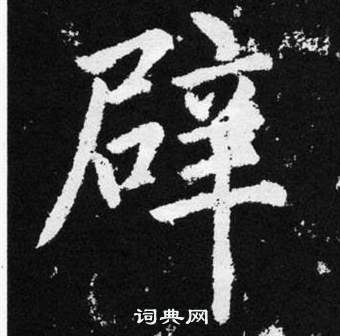 辟
词典网